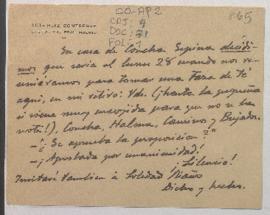 CO-PP2
CPJ: 9
DOC: 21
FOL:
865
En casa de Concha Espina decidi-
mos que sería el lunes 28 cuando nos re-
uniéramos para tomar una taza de té
aquí, en mi retiro: Vds. (¡hasta la pequeña
si viene muy encogida para que no se
note!), Concha, Halma, Camino y
— "¿Se aprueba la proposición?"
— ¡Aprobada por unanimidad!
¡Silencio!
Invitaré también a Soledad
Dicho y hecho.